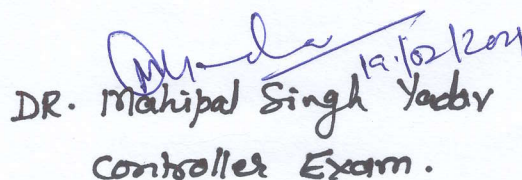 19/02/2021
DR. Mahipal Singh Yadav
Controller Exam.